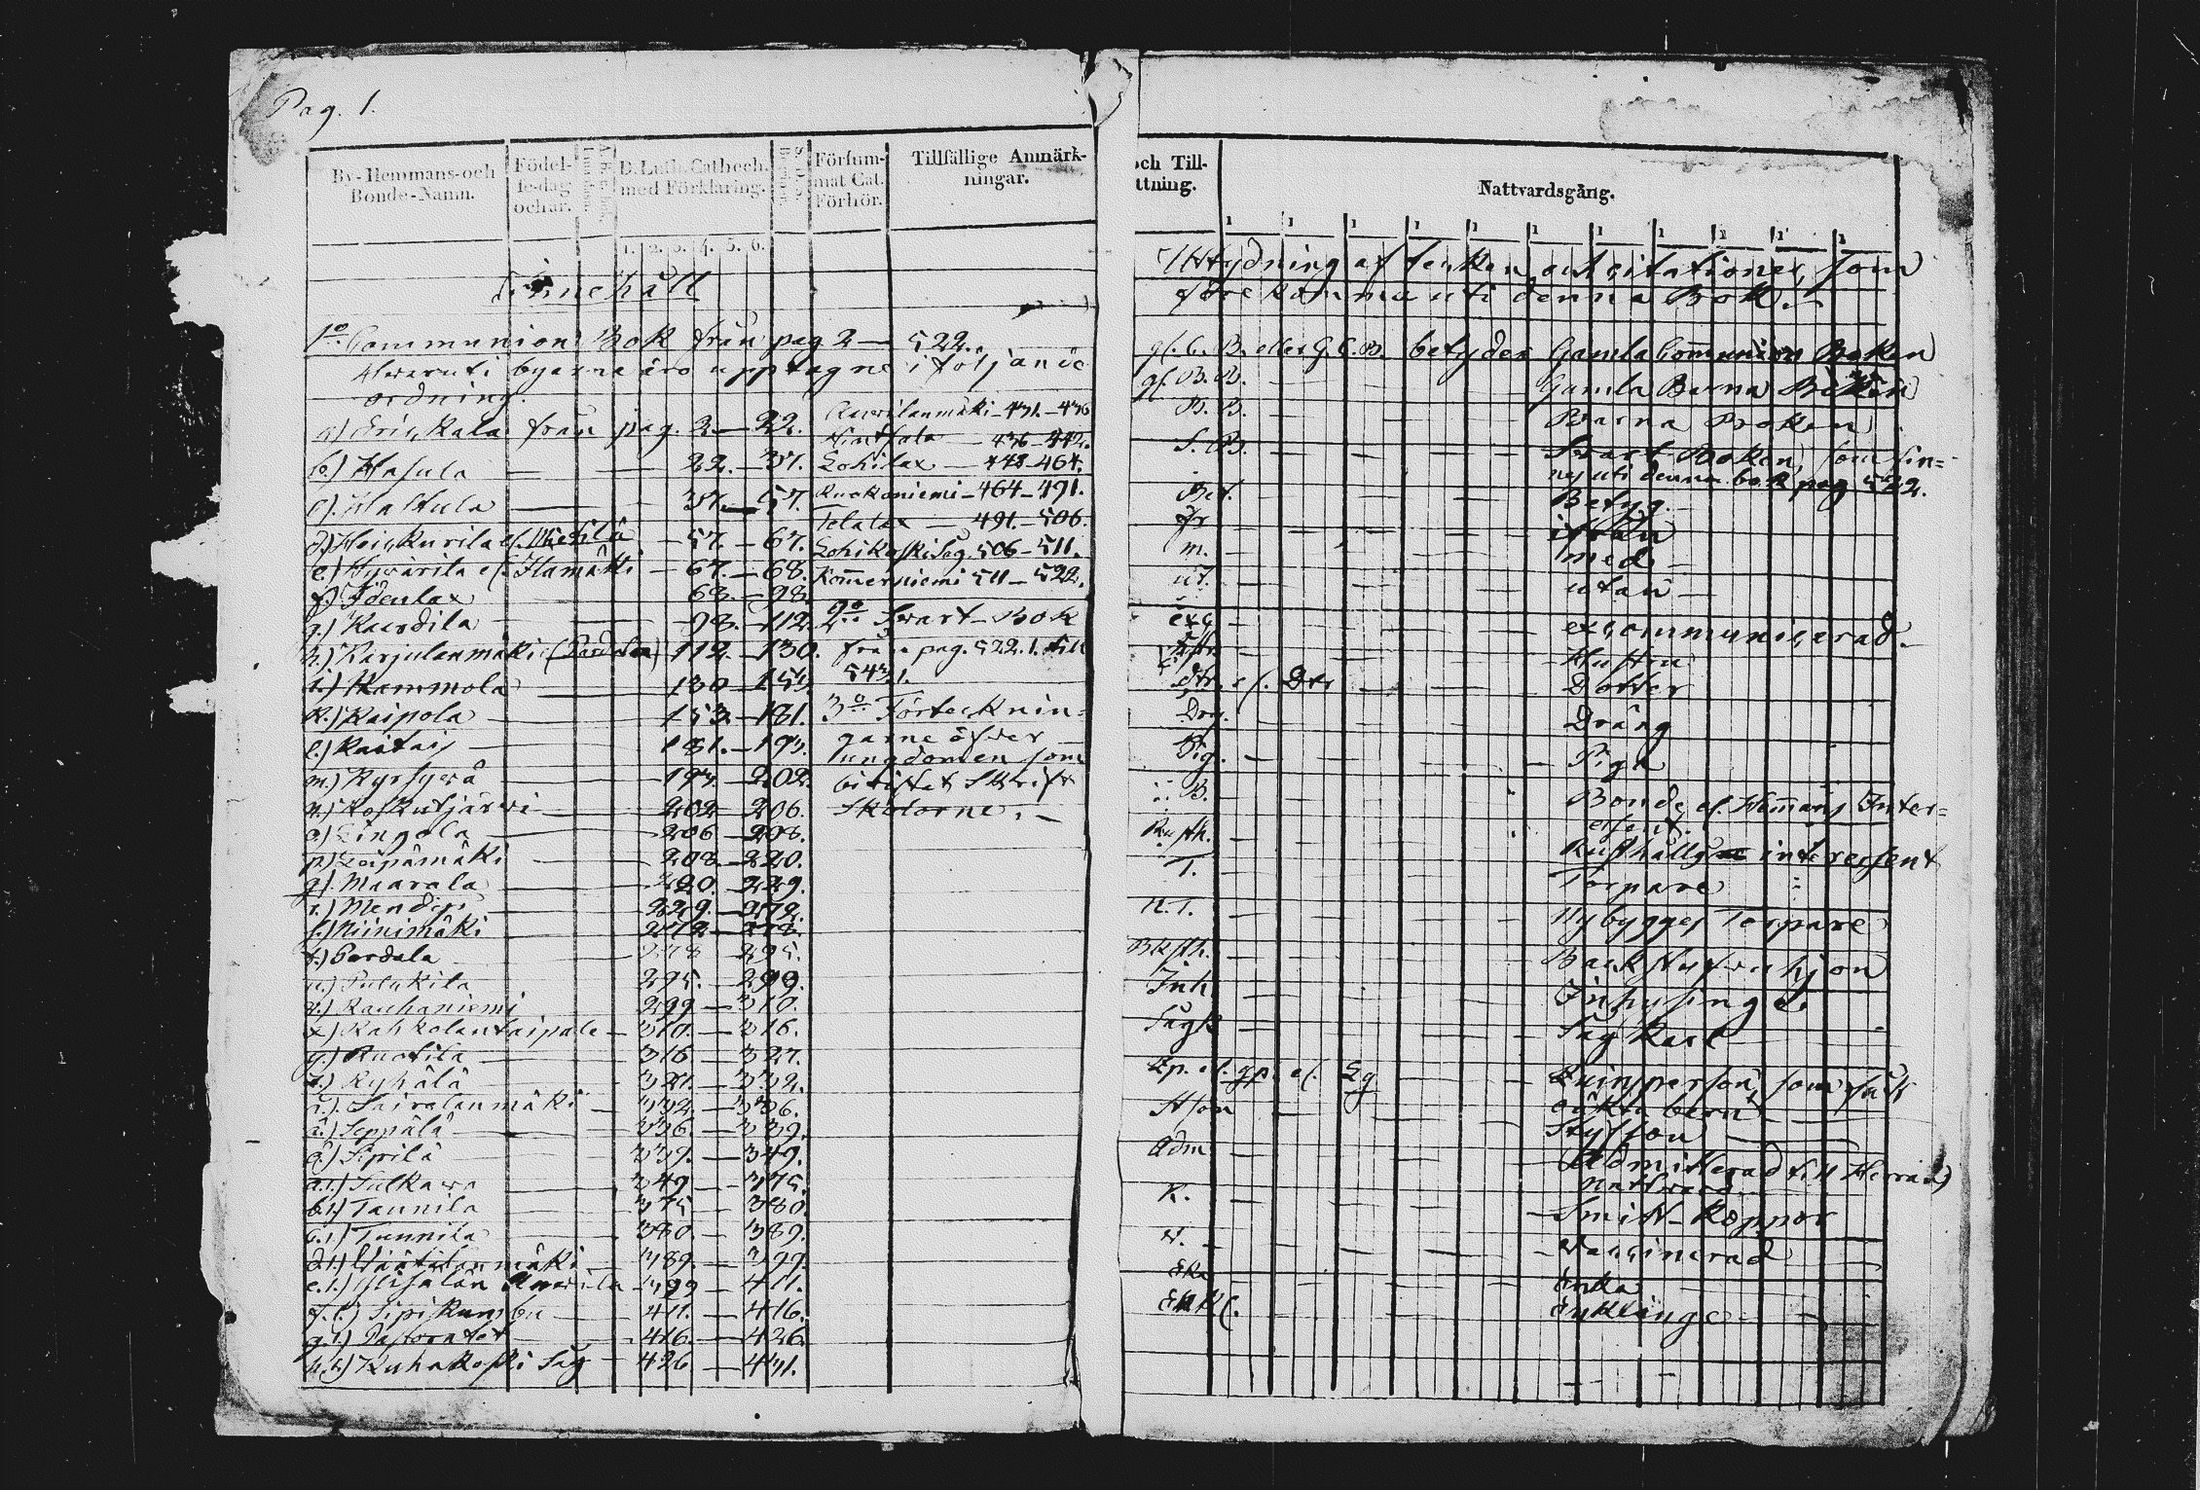 Pag. 1.
By- Hemmans- och Bonde-Namn.
Födel- sedag och år.
D. Luth. Cathech. med Förklaring.
Försum- mat Cat. Förhör.
Tillfällige Anmärk- ningar.
1. 2. 3. 4. 5. 6.
Innehåll
1o Communion Bok från pag 2 — 522.
hvaruti byarna äro upptagne i följande
ordning.
a.) Eriskala från pag. 2 — 22.
b.) Hasula — — 22. — 37.
c.) Haltula — 37. — 57.
d.) Heiskurila — 57. — 67.
e.) Hyvärilä el. Ilamäki — 67. — 68.
f.) Idenlax — 68. — 98
g.) Kaerdila — 98. — 112.
h.) Karjulanmäki — 112. — 130.
i.) Kammola — 130 — 153.
k.) Kaipola — 153. — 181.
l.) Kaitais — 181. — 193.
m.) Kyrsyerä — 193. — 202.
n.) Koskutjärvi — 202 — 206.
o.) Lingola — 206 — 208.
p.) Leipämäki — 208. — 220.
q.) Maarala — 220. — 229.
r.) Mendis — 229. — 272.
s.) Niinimäki — 272 — 278.
t.) Pardala 278 295.
u.) Pulakila 295. — 299.
v.) Rauhaniemi 299 — 310.
x.) Rahkolantaipale — 310. — 316.
y.) Ruotila — 316 — 327.
z.) Ryhälä — 327. — 332.
å.) Sairalanmäki — 332. — 336.
ä.) Seppälä — 336. — 339.
ö.) Sipilä — 339. — 349.
a.1.) Sulkava — 349 — 375.
b.1.) Taunila — 375 — 380.
c.1.) Tunnila — 380. — 389.
d.1.) Väätälänmäki — 389. — 399.
e.1.) — 399 — 411.
f.1.) — 411. — 416.
g.1.) Pastoratet — 416. — 426.
h.1.) Kuhakoski Såg — 426 — 431.
Auvilanmäki — 431. — 436
— 436 — 442.
Lohilax — 448 — 464.
Ruokoniemi — 464 — 491.
Telatax — 491. — 506.
Lohikoski Såg. 506 — 511.
Kommerniemi 511 — 522.
2o Svart-Bok
från pag. 522.1. till
543.
3o Förtecknin-
garne öfver
Ungdomen som
bivistat Skrift
Skolorne. —
och Till- ttning.
Nattvardsgång.
1 1 1 1 1 1 1 1 1 1 1
Uttydning af tecken och citationer, som
förekomma uti denna Bok. —
gl. C. B. eller G. C. B. betyder Gamla Communion Boken
gl. B. B. — — — Gamla Barna Boken
B. B. — — — Barna Boken
S. B. — — — Svart Boken, som fin=
nes uti denna bok pag 522.
Bet. — — — Betyg. —
fr — — — ifrån
m. — — — med —
ut. — — — utan —
exc — — — excommunicerad. —
— — — Hustru
dtr. el. Dtr — — — Dotter
Drg. — — — Dräng
Pig. — — — Piga
B. — Bonde el. Hemans Inter=
essent.
Rusth. — Rusthålls interessent
T. — Torpare
N. T. — — — Nybygges Torpare
Bksth. — — — Backstuguhjon
Inh. — — — Inhysing
Sågk — — — Sågkarl —
Kp. el. qp. el. Lg — — Quinsperson, som fådt
oäkta barn
Stson — — — Styfson —
Adm — — — Admitterad till Herrans
Nattvard
K. — — — Smitt-koppor
v. — — — Vaccinerad
Eka — — — Enka
Enkl. — — — Enkling —